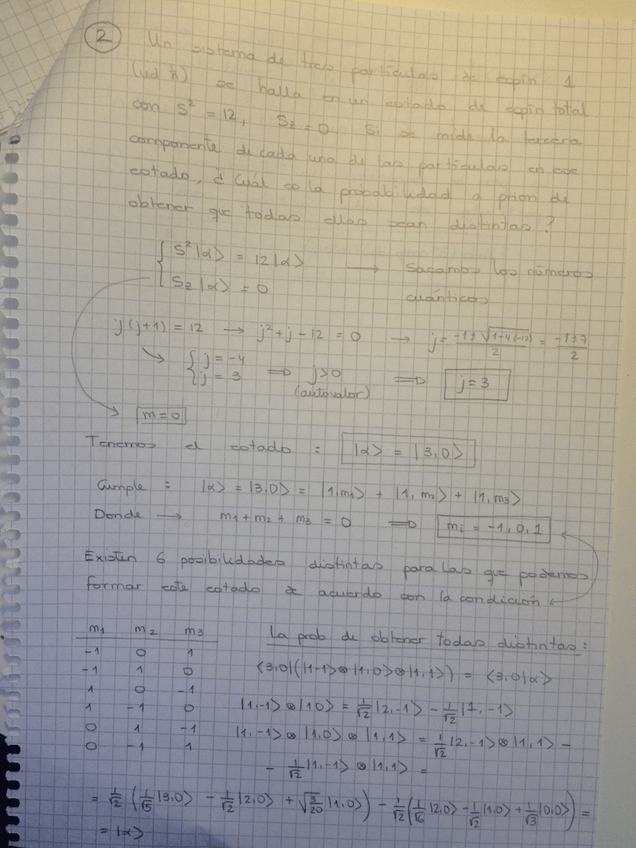 2 Un sistema de tres partículas de espín 1
(ud ħ) se halla en un estado de espín total
con S² = 12, Sz = 0. Si se mide la tercera
componente de cada una de las partículas en ese
estado, ¿Cuál es la probabilidad a priori de
obtener que todas ellas sean distintas?
{ S²|α> = 12|α> → Sacamos los números
{ Sz|α> = 0 cuánticos
j(j+1) = 12 → j² + j - 12 = 0 → j = (-1 ± √(1-4(-12)))/2 = (-1 ± 7)/2
↘ { j = -4
{ j = 3 ⇒ j>0 ⇒ j = 3
(autovalor)
m = 0
Tenemos el estado : |α> = |3,0>
Cumple : |α> = |3,0> = |1,m₁> + |1,m₂> + |1,m₃>
Donde → m₁ + m₂ + m₃ = 0 ⇒ mi = -1, 0, 1
Existen 6 posibilidades distintas para las que podemos
formar este estado de acuerdo con la condición ←
m₁ m₂ m₃ La prob de obtener todas distintas :
-1 0 1
-1 1 0 <3,0|(|1-1>⊗|1,0>⊗|1,1>) = <3,0|α>
1 0 -1
1 -1 0 |1,-1> ⊗ |1 0> = 1/√2 |2,-1> - 1/√2 |1,-1>
0 1 -1 |1,-1> ⊗ |1,0> ⊗ |1,1> = 1/√2 |2,-1> ⊗ |1,1> -
0 -1 1
- 1/√2 |1,-1> ⊗ |1,1> =
= 1/√2 (1/√5 |3,0> - 1/√2 |2,0> + √(3/20) |1,0>) - 1/√2 (1/√6 |2,0> - 1/√2 |1,0> + 1/√3 |0,0>) =
= |α>